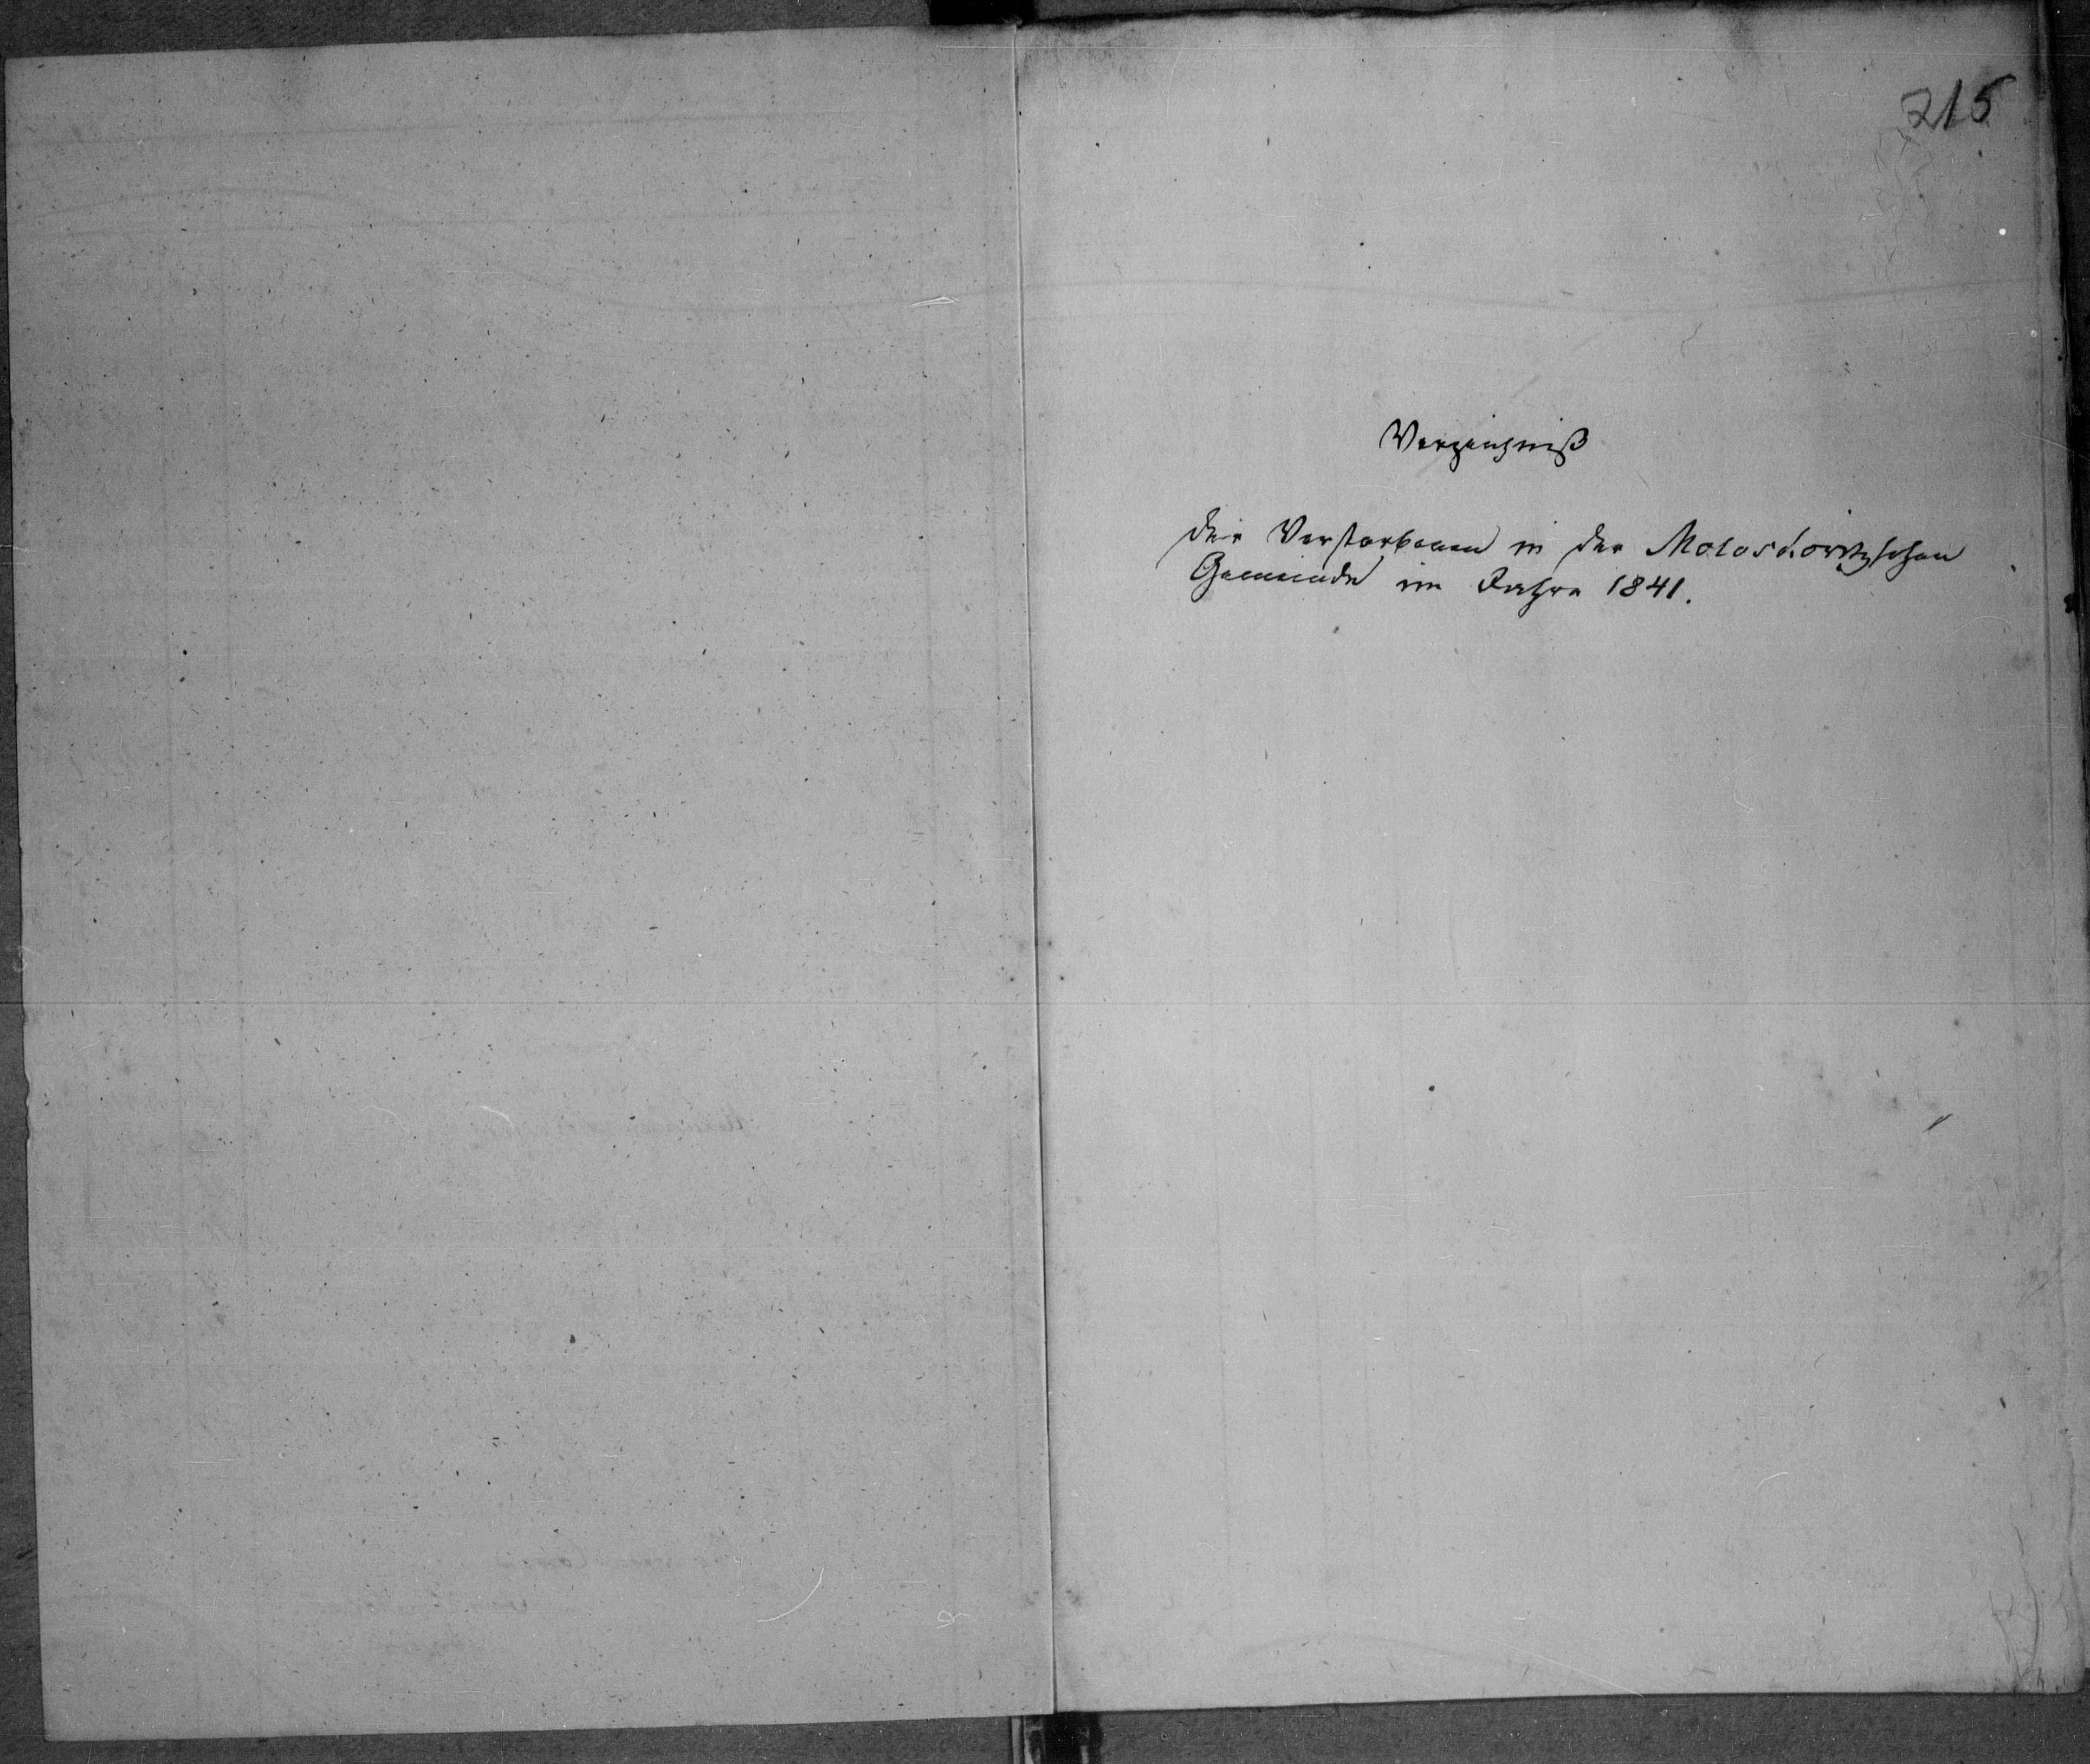 215
Verzeichniß
der Verstorbenen in der Moloskowitzschen
Gemeinde im Jahre 1841.